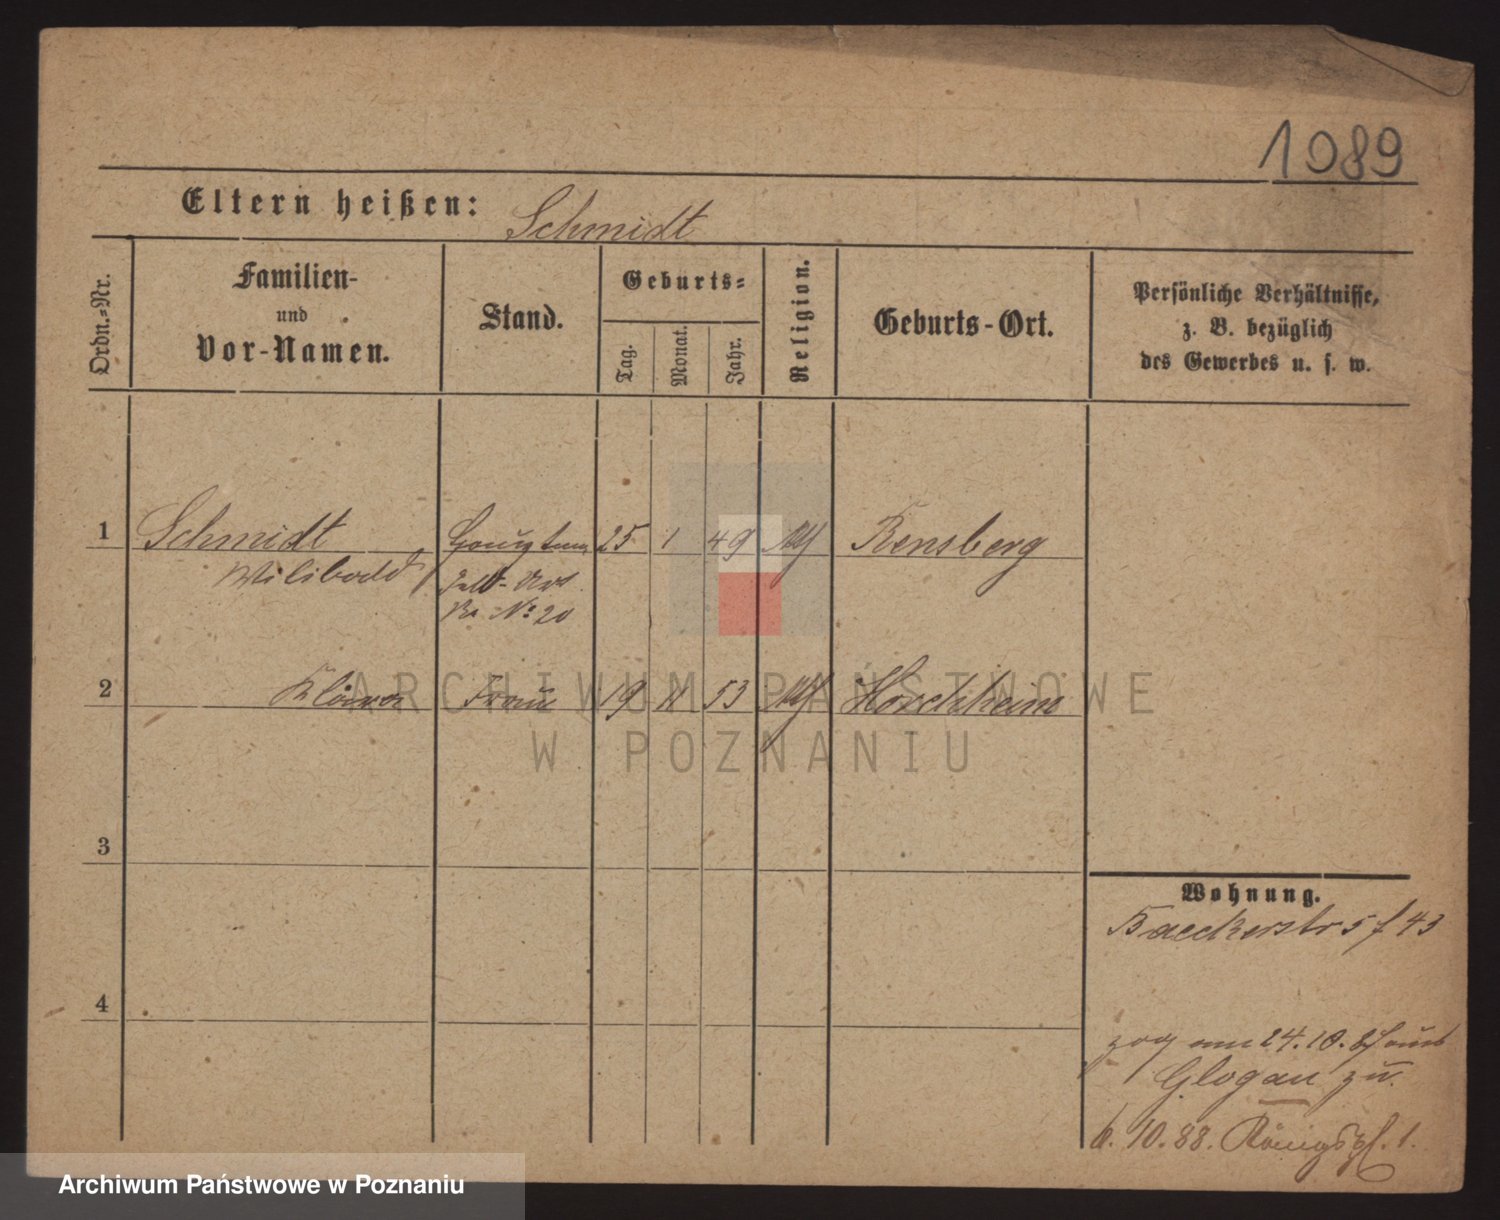 1089
Eltern heißen: Schmidt
Ordn.-Nr.
Familien-
und
Vor-Namen.
Stand.
Geburts-
Tag.
Monat.
Jahr.
Religion.
Geburts-Ort.
Persönliche Verhältnisse,
z. B. bezüglich
des Gewerbes u. s. w.
1 Schmidt Hauptm 25 1 49 Rensberg
Wilibald
No 20
2 Klara Frau 19 11 53 Horchheim
3
4
Wohnung.
Baeckerstr 5 f 43
zog am 24.10.87 aus
Glogau zu.
6.10.88. Königspl. 1.
ARCHIWUM PAŃSTWOWE
W POZNANIU
Archiwum Państwowe w Poznaniu